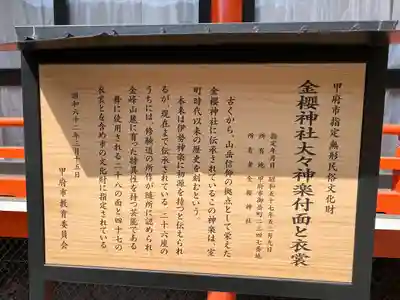 甲府市指定無形民俗文化財
金櫻神社太々神楽付面と衣裳
指定年月日 昭和五十七年五月九日
所在地 甲府市御岳町二三四七番地
所有者 金櫻神社
古くから、山岳信仰の拠点として栄えた
金櫻神社に伝承されているこの神楽は、室
町時代以来の歴史を刻むという。
本来は伊勢神楽に初源を持つと伝えられ
るが、現在まで伝承されている二十六座の
うちには、修験道の所作が随所に認められ、
金峰山麓に育った特異性を持つ芸能である
舞に使用される二十八の面と四十七の
衣裳とを含め市の文化財に指定されている。
昭和六十二年三月十五日
甲府市教育委員会